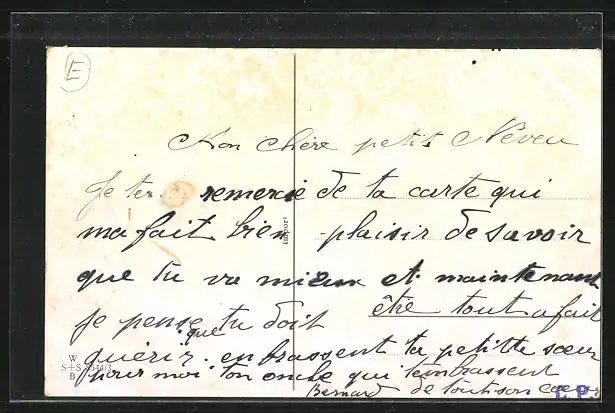 E
Mon chère petit Neveu
Je te remercie de ta carte qui
ma fait bien plaisir de savoir
que tu va mieux et maintenant
je pense que tu doit être tout a fait
guérir. enbrassent ta petitte sœur
pour moi ton oncle qui t'embrassent
Bernard de tout son cœur
import
W
S+S
B
C. P.